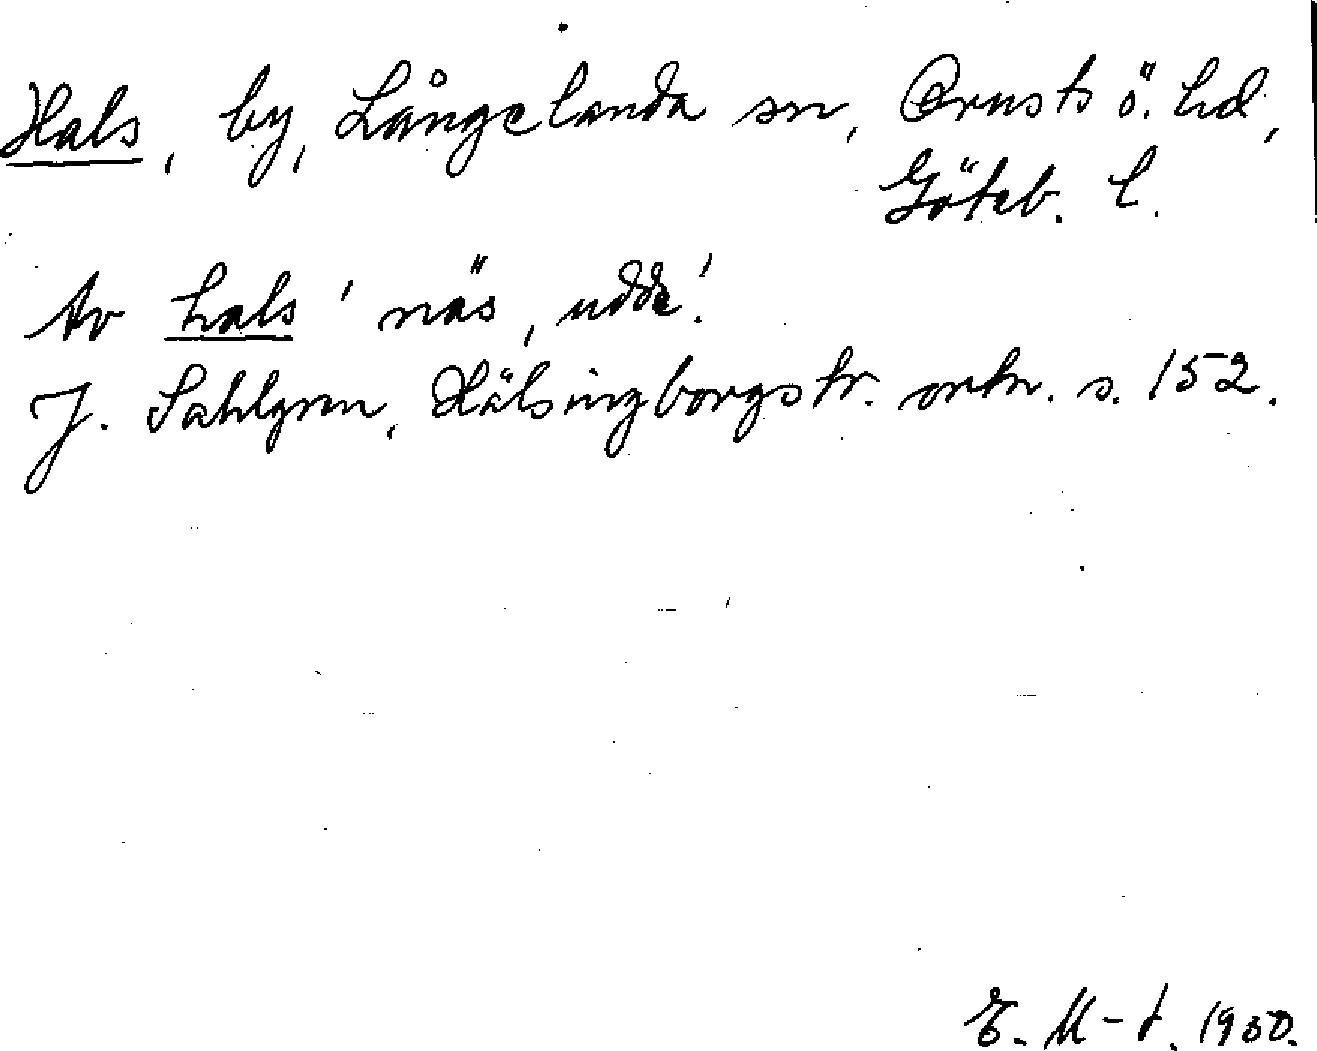 Hals, by, Långelanda sn, Orusts ö. hd,
Göteb. l.
Av hals 'näs, udde'.
J. Sahlgren, Hälsingborgstr. ortn. s. 152.
E. M-t. 1930.